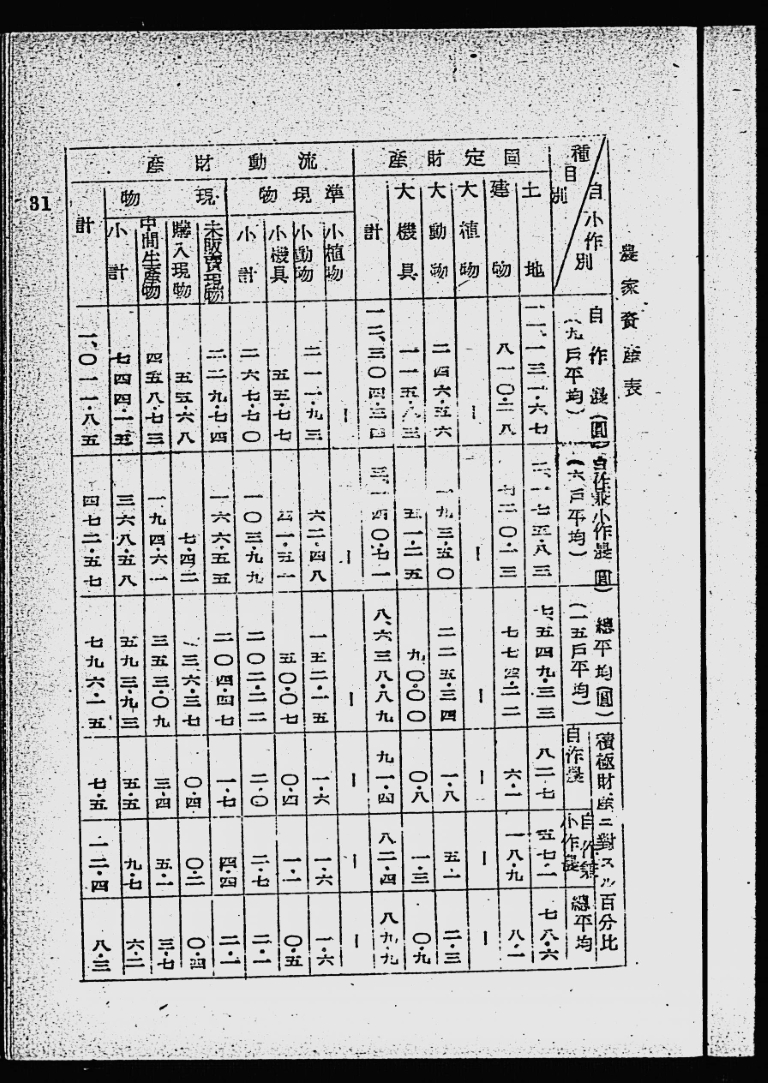 農家資産表
種目別 自小作別 自作農(圓)(九戸平均) 自作兼小作農(圓)(六戸平均) 總平均(圓)(一五戸平均) 積極財産ニ對スル百分比 自作農 自作兼小作農 總平均
固定財産
土地 一一、一三一・六七 二、一七五・八三 七、五四九・三三 八二・七 五七・一 七八・六
建物 八一〇・二八 七二〇・一三 七七四・二二 六・一 一八・九 八・一
大植物 ー ー ー ー ー ー
大動物 二四六・五六 一九三・五〇 二二五・三四 一・八 五・一 二・三
大機具 一一五・八三 五一・二五 九〇・〇〇 〇・八 一・三 〇・九
計 一二、三〇四・三四 三、一四〇・七一 八、六三八・八九 九一・四 八二・四 八九・九
流動財産
準現物
小植物 ー ー ー ー ー ー
小動物 二一一・九三 六二・四八 一五二・一五 一・六 一・六 一・六
小機具 五五・七七 四一・五一 五〇・〇七 〇・四 一・一 〇・五
小計 二六七・七〇 一〇三・九九 二〇二・二二 二・〇 二・七 二・一
現物
未販賣現物 二二九・七四 一六六・五五 二〇四・四七 一・七 四・四 二・一
購入現物 五五・六八 七・四二 三六・三七 〇・四 〇・二 〇・四
中間生産物 四五八・七三 一九四・六一 三五三・〇九 三・四 五・一 三・七
小計 七四四・一五 三六八・五八 五九三・九三 五・五 九・七 六・二
計 一、〇一一・八五 四七二・五七 七九六・一五 七・五 一二・四 八・三
31